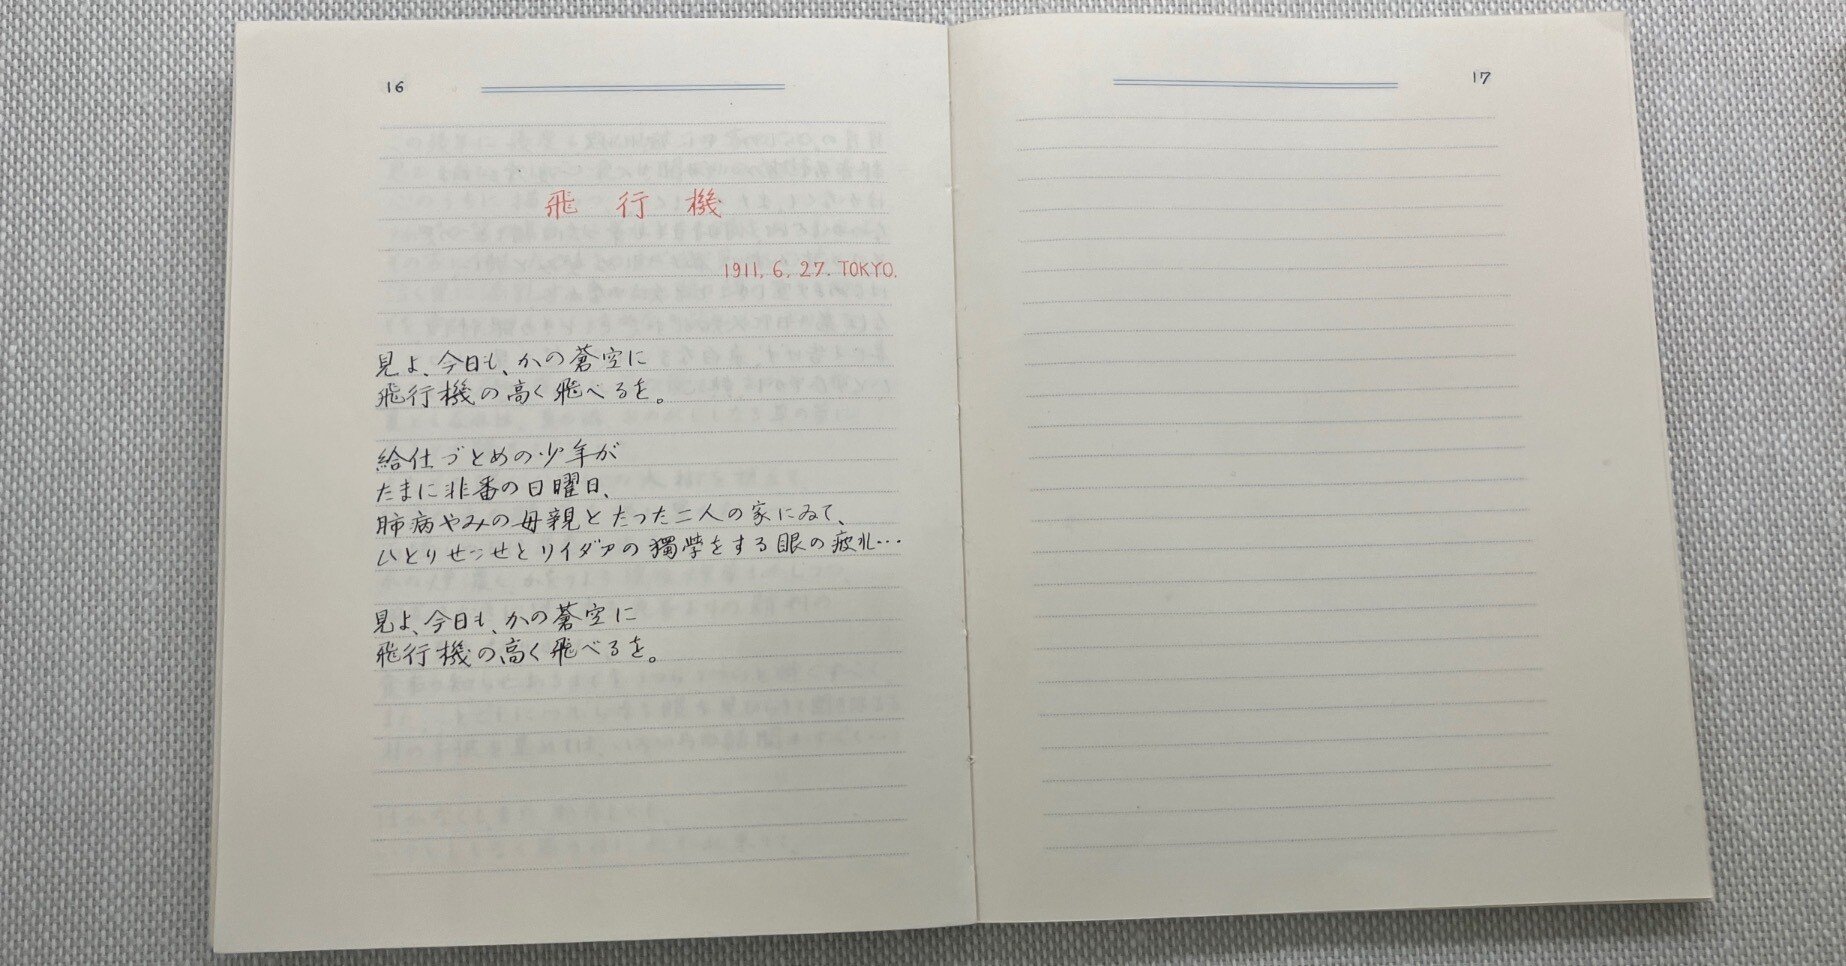 16
飛行機
1911. 6. 27. TOKYO.
見よ、今日も、かの蒼空に
飛行機の高く飛べるを。
給仕づとめの少年が
たまに非番の日曜日、
肺病やみの母親とたった二人の家にゐて、
ひとりせっせとリイダアの獨學をする眼の疲れ…
見よ、今日も、かの蒼空に
飛行機の高く飛べるを。
17